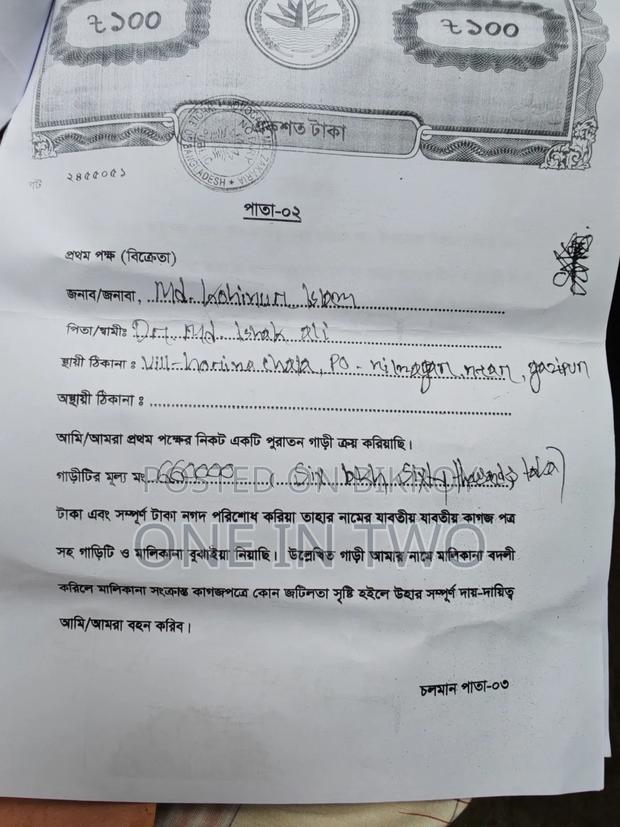 ৳১০০ ৳১০০
একশত টাকা
BANGLADESH
২৪৫৫০৫১
পাতা-০২
প্রথম পক্ষ (বিক্রেতা)
জনাব/জনাবা, Md. Islam
পিতা/স্বামীঃ Dr. Md Ishak ali
স্থায়ী ঠিকানা : Vill- horina chala, PO - gazipur
অস্থায়ী ঠিকানা :
আমি/আমরা প্রথম পক্ষের নিকট একটি পুরাতন গাড়ী ক্রয় করিয়াছি।
গাড়ীটির মূল্য মং 660000 ( Six lakh Sixty thousands taka)
টাকা এবং সম্পূর্ণ টাকা নগদ পরিশোধ করিয়া তাহার নামের যাবতীয় যাবতীয় কাগজ পত্র
সহ গাড়িটি ও মালিকানা বুঝাইয়া নিয়াছি। উল্লেখিত গাড়ী আমার নামে মালিকানা বদলী
করিলে মালিকানা সংক্রান্ত কাগজপত্রে কোন জটিলতা সৃষ্টি হইলে উহার সম্পূর্ণ দায়-দায়িত্ব
আমি/আমরা বহন করিব।
চলমান পাতা-০৩
POSTED ON BIKROY
ONE IN TWO